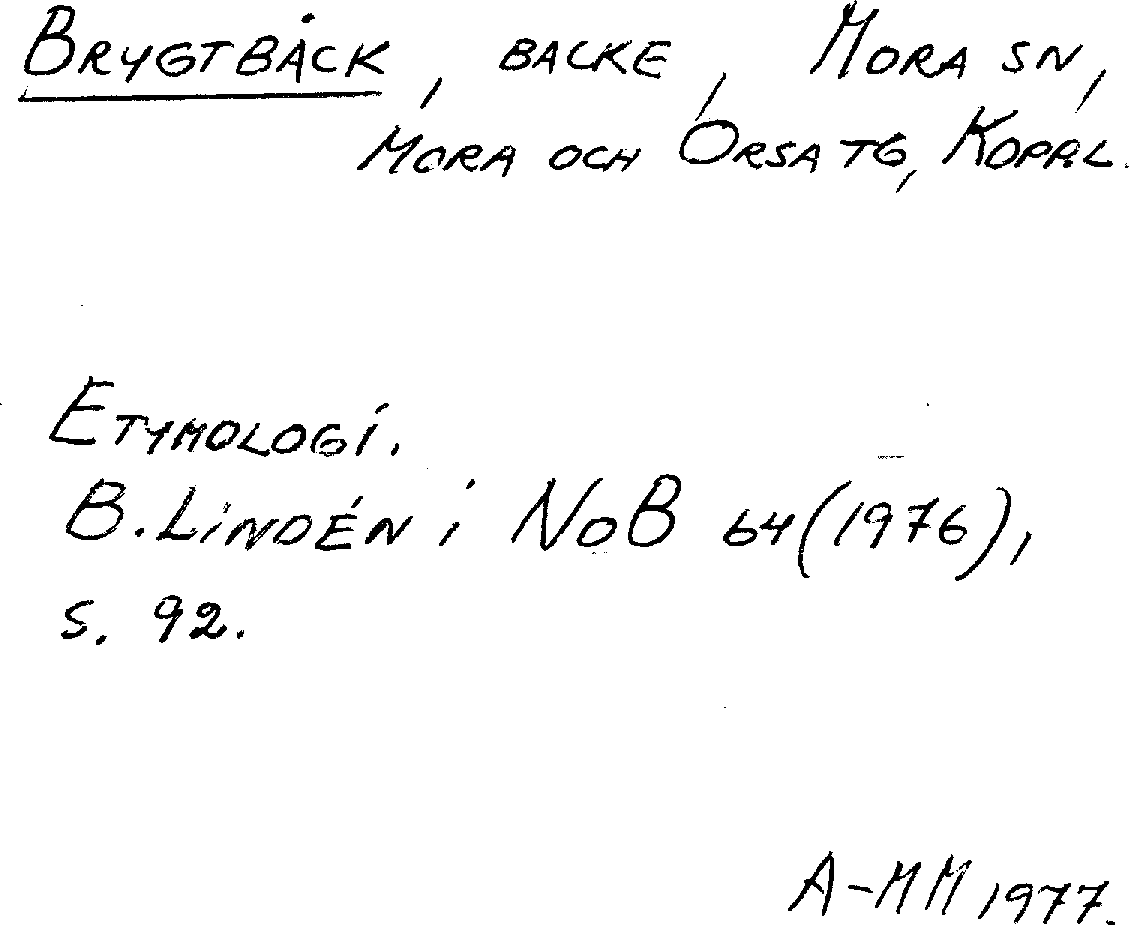 BRYGTBÅCK, BACKE, MORA SN,
MORA OCH ORSA TG, KOPAL.
ETYMOLOGI.
B. LINDÉN I NoB 64 (1976),
S. 92.
A-MM 1977.